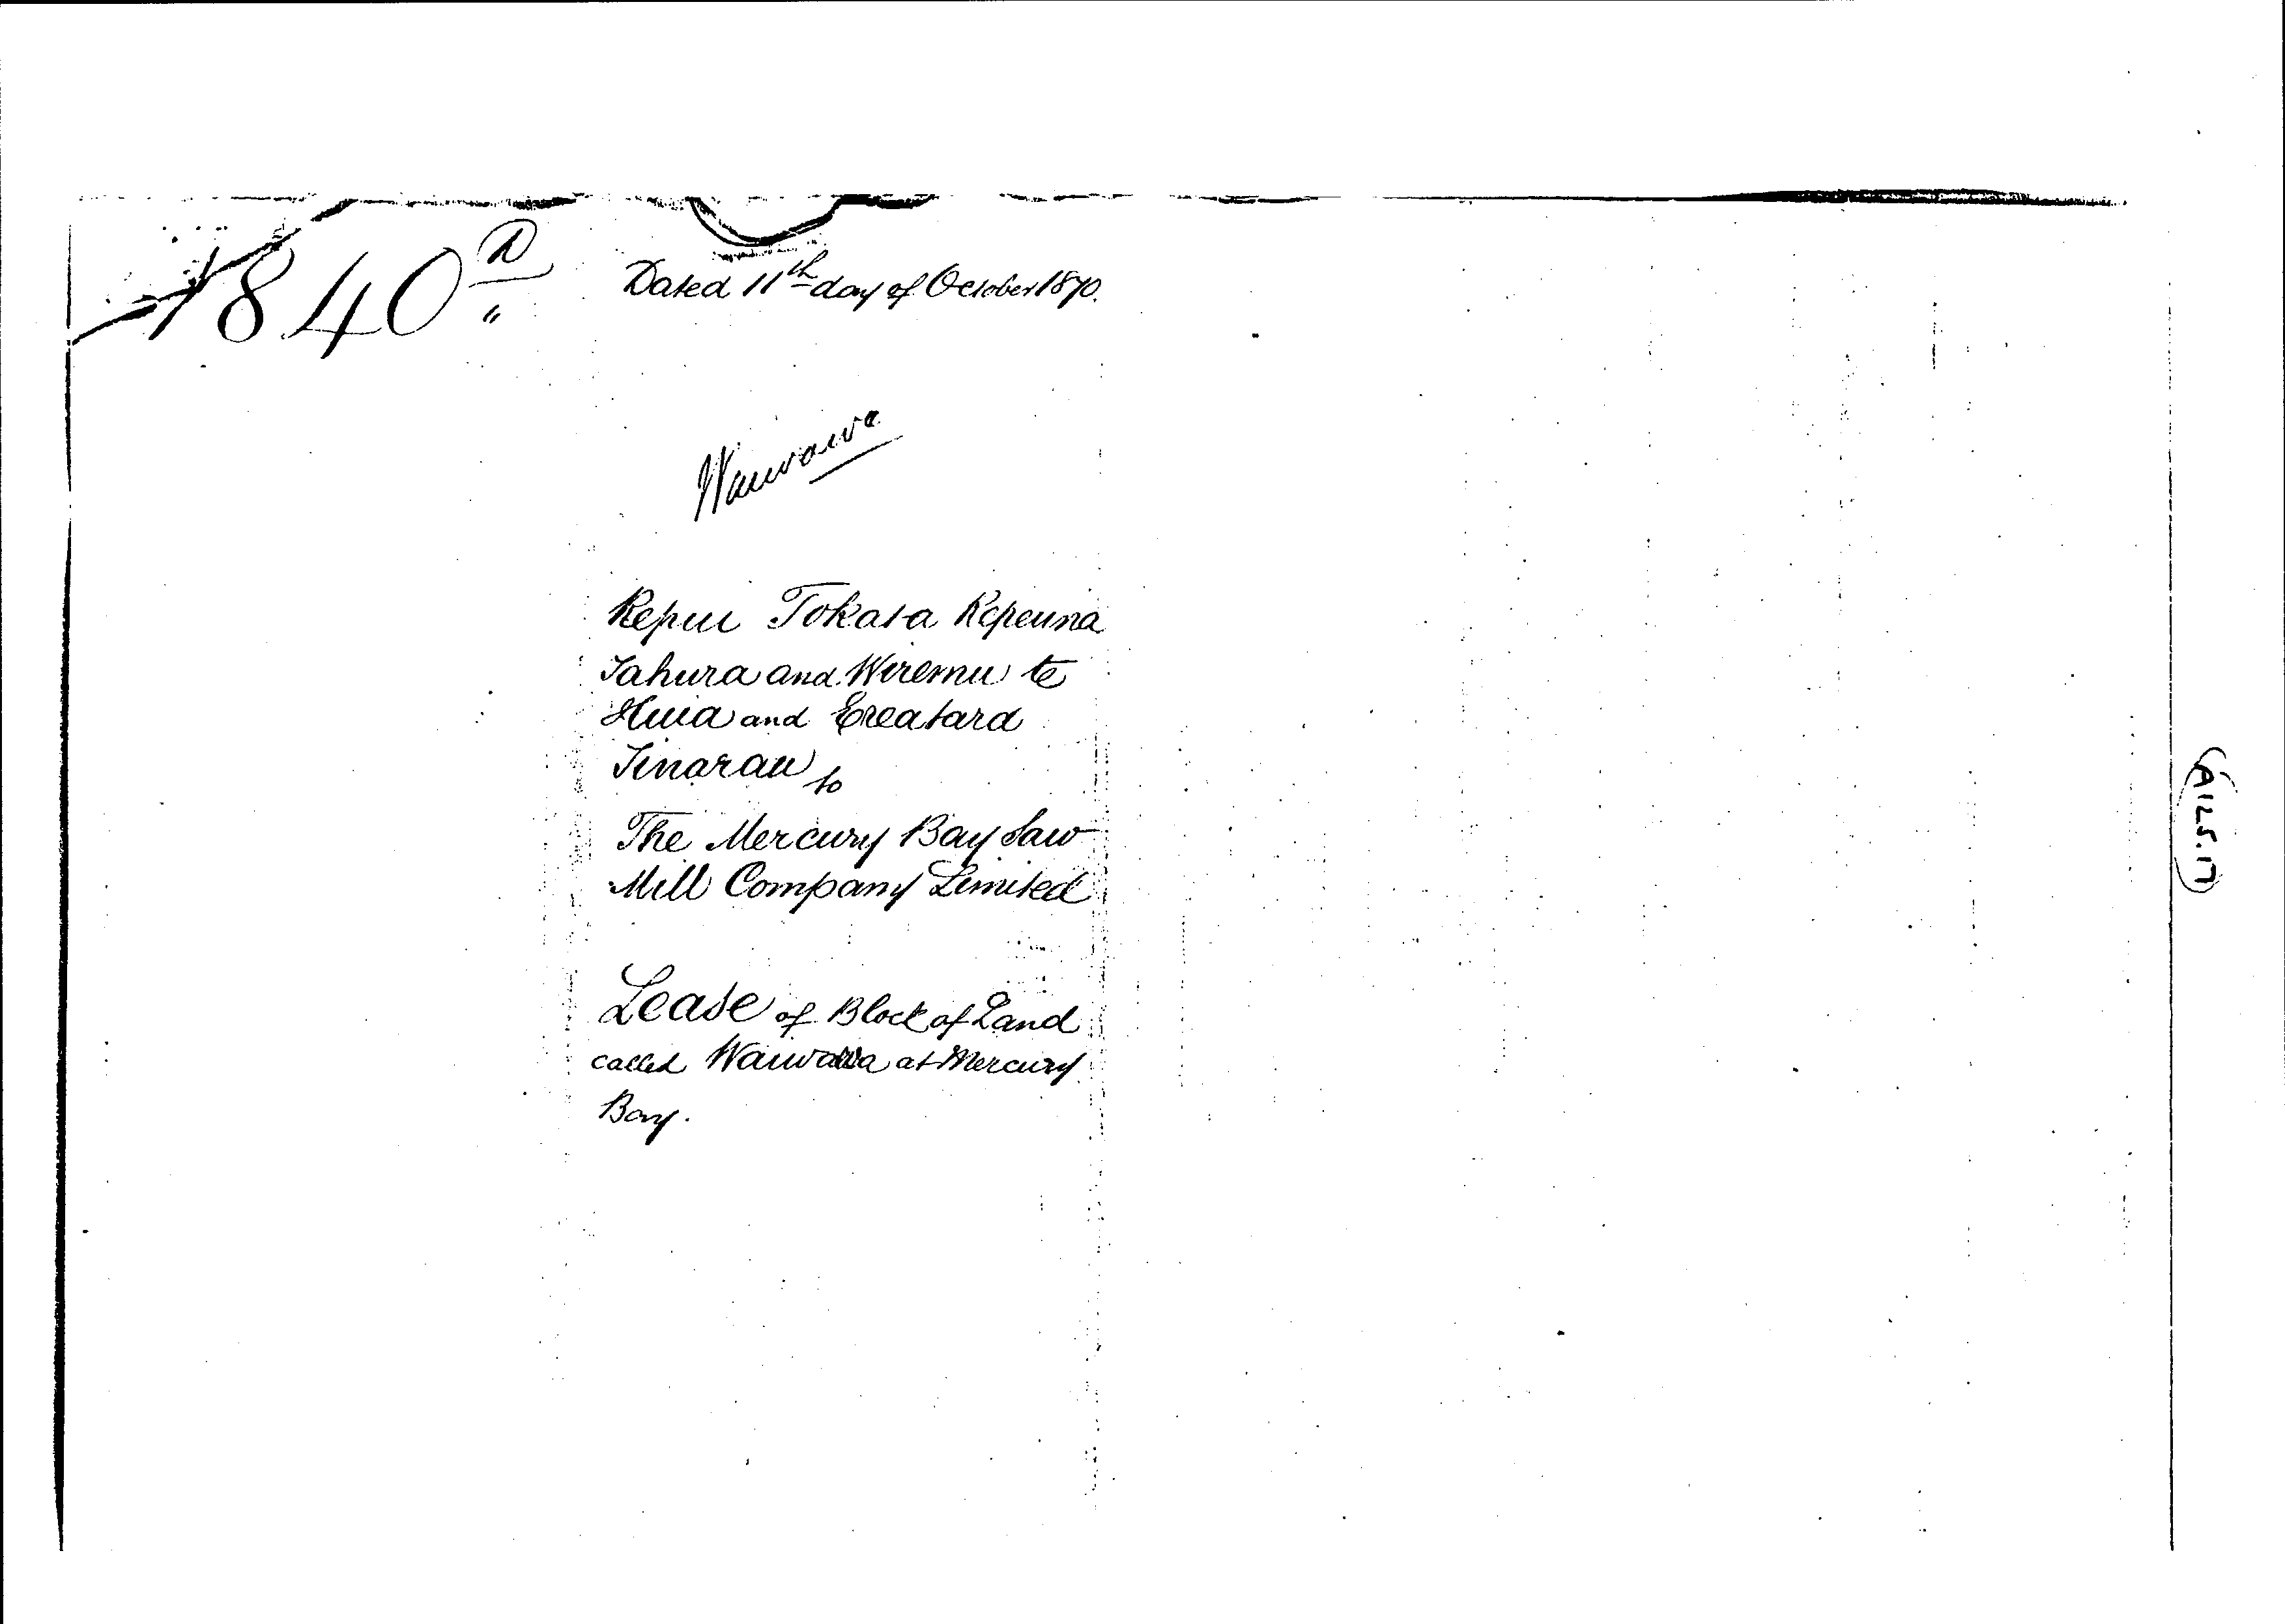 1840 R
"
Dated 11th day of October 1870.
Waiwawa
Repui Tokata Repeuna
Tahura and Wiremu te
Huia and Ereatara
Tinarau to
The Mercury Bay Saw
Mill Company Limited
Lease of Block of Land
called Waiwawa at Mercury
Bay.
A125.17